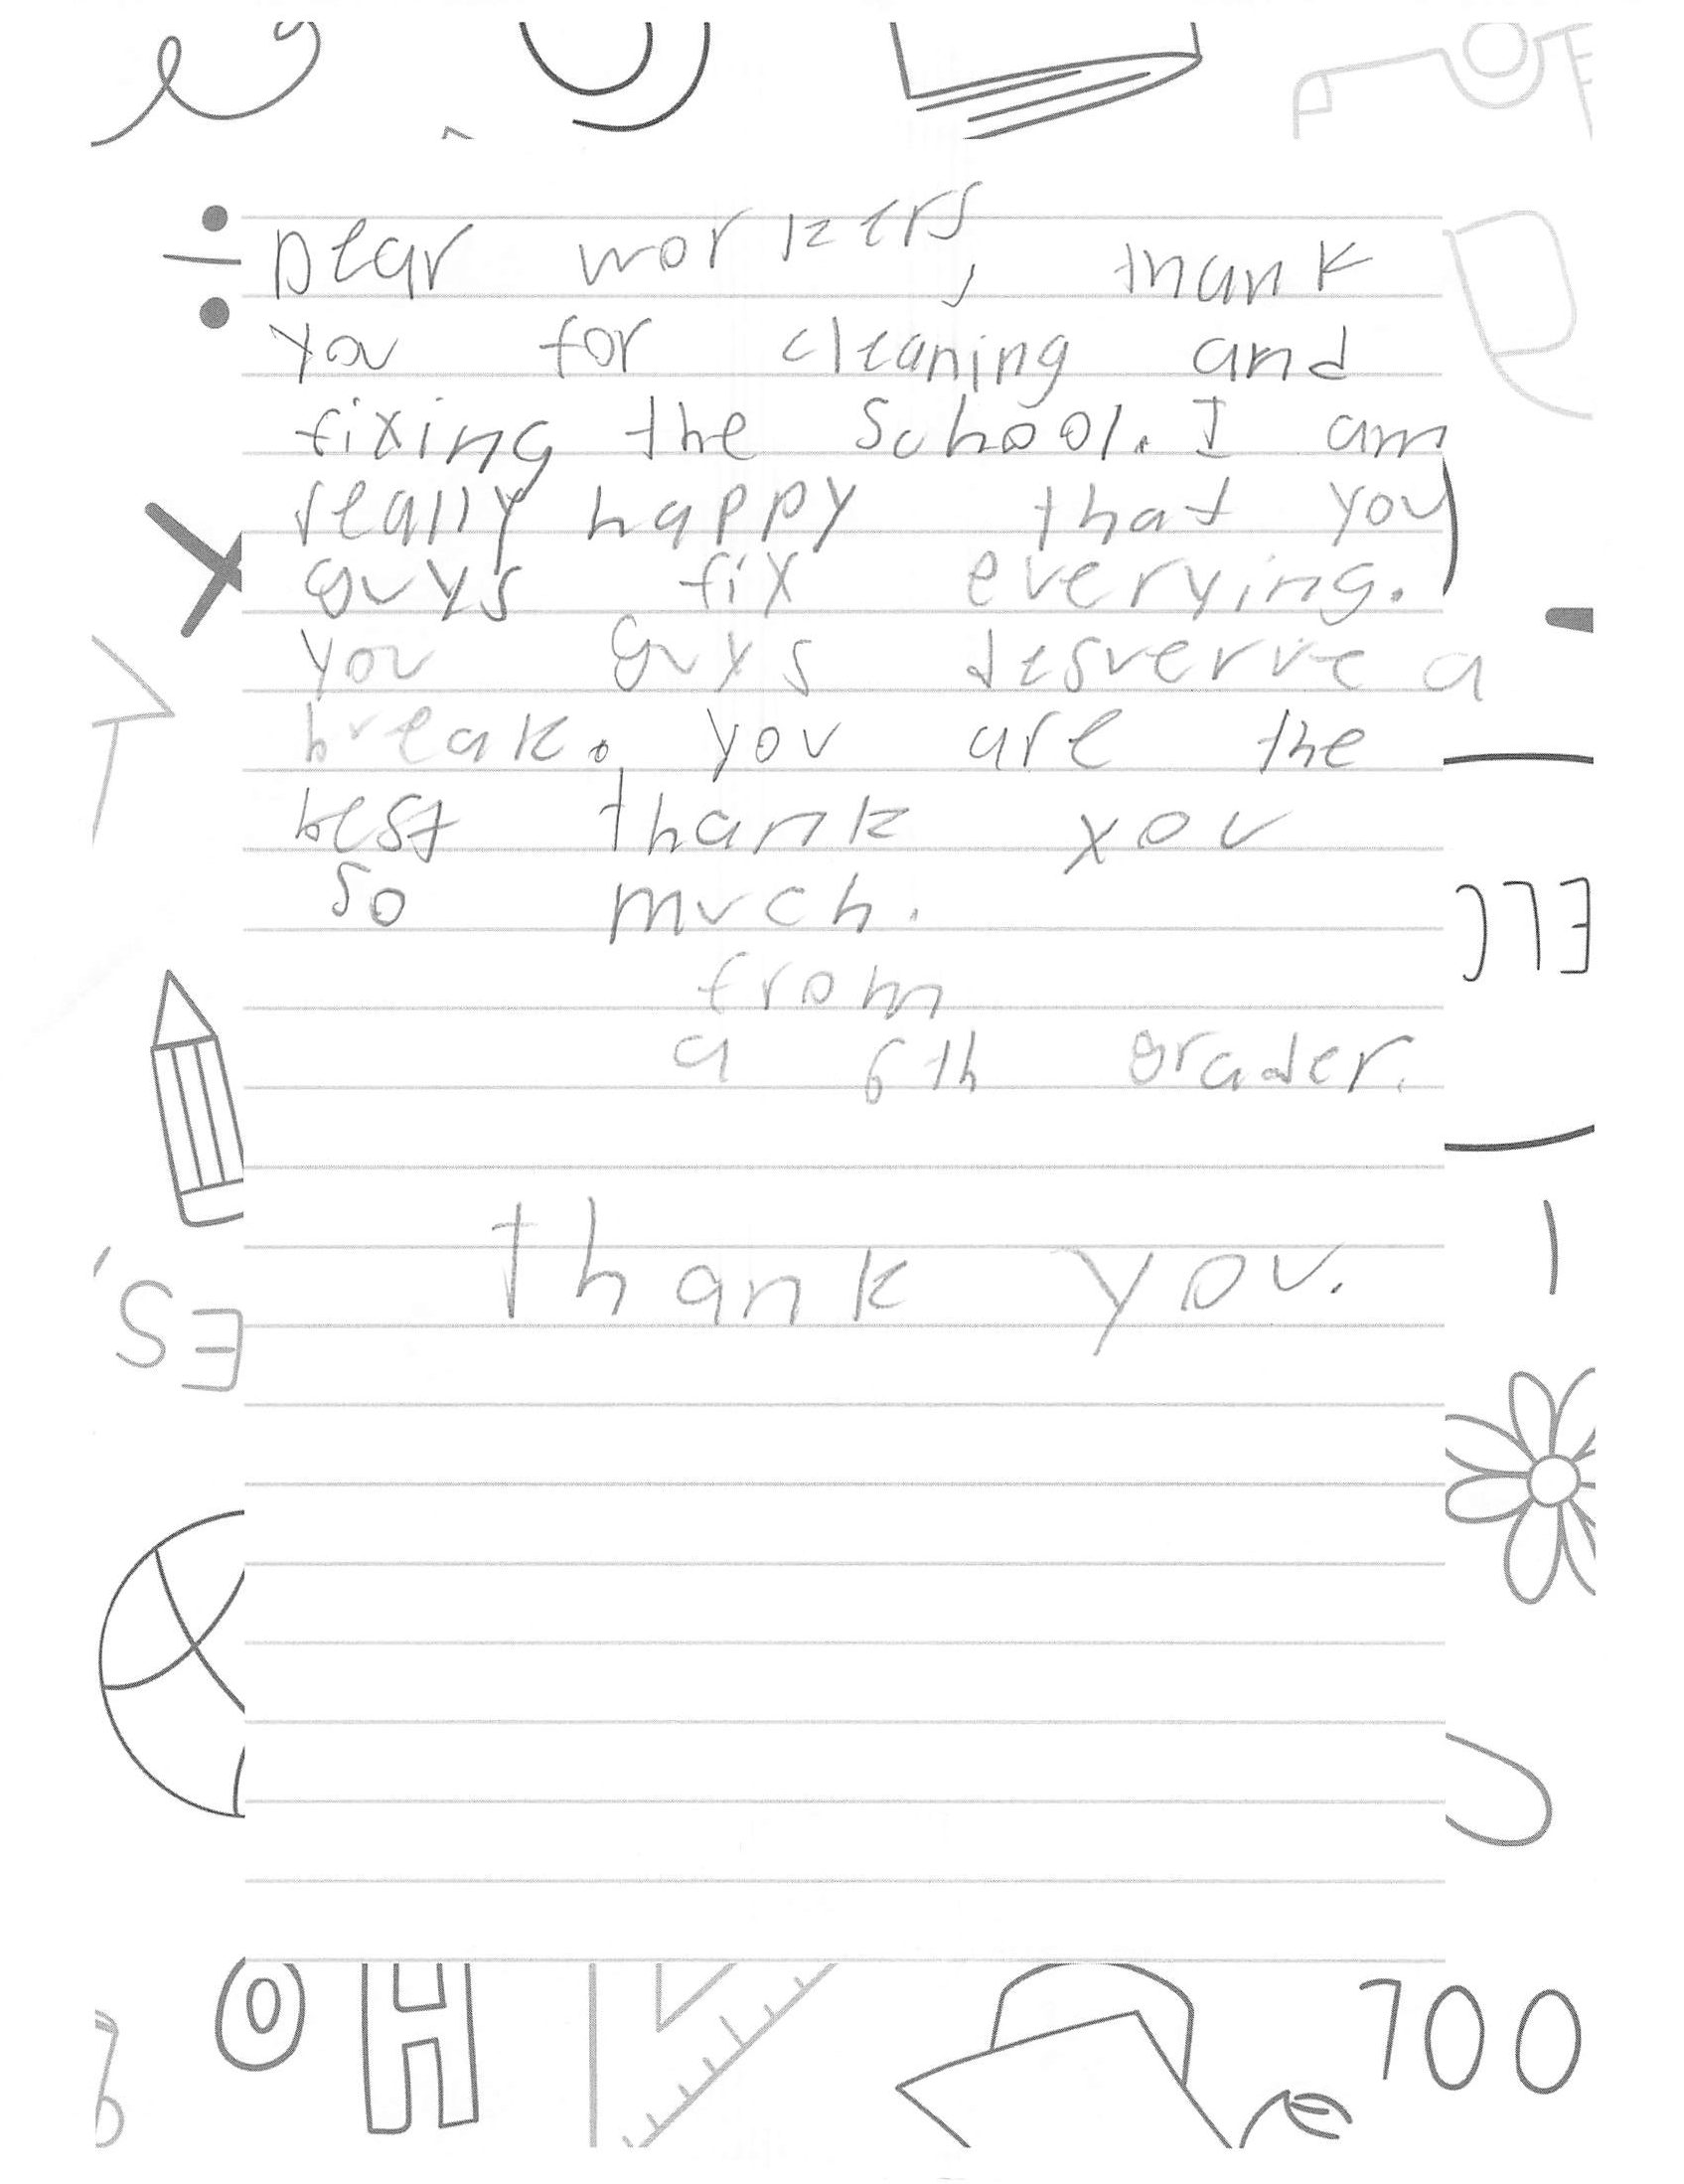 Dear workers, thank
you for cleaning and
fixing the School. I am
really happy that you
guys fix everying.
you guys desverve a
break. you are the
best thank you
so much.
from
a 6th grader.
thank you.
OH
100